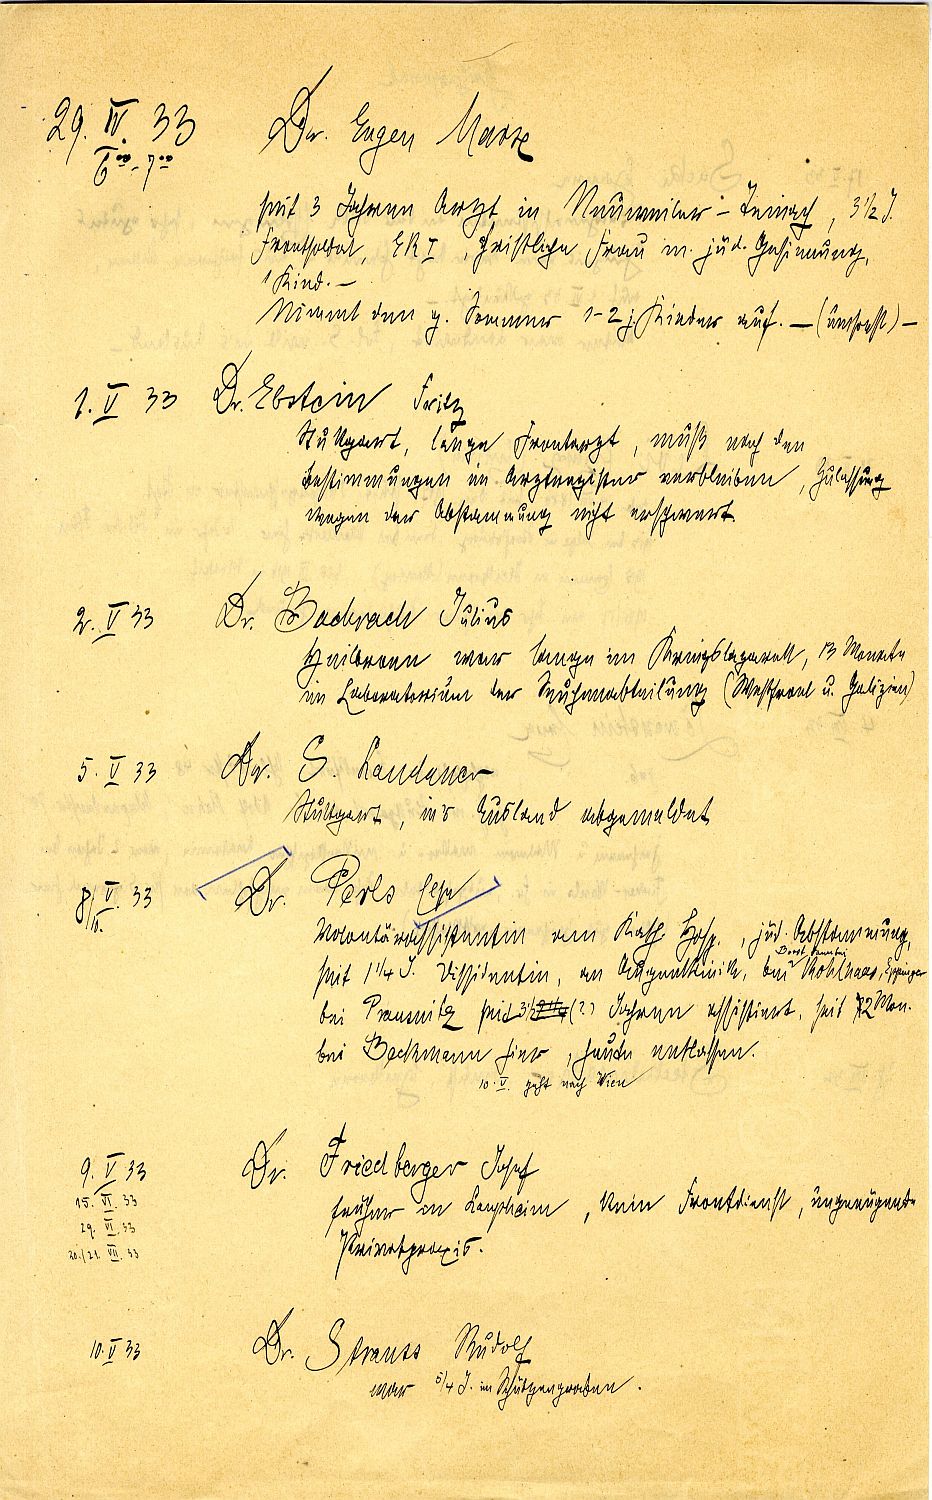 29. IV. 33 Dr. Eugen Marx
6⁰⁰-7⁰⁰
seit 3 Jahren Arzt in Neuweiler-Teinach, 3 1/2 J.
Frontsoldat, EK I, christliche Frau m. jüd. Gesinnung,
1 Kind. —
Nimmt den g. Sommer 1-2 j. Kinder auf. — () —
1. V 33 Dr. Ebstein Fritz
Stuttgart, lange Frontarzt, muß nach den
Bestimmungen im Arztregister verbleiben, Zulassung
wegen der Abstammung nicht erschwert.
2. V 33 Dr. Bachrach Julius
Heilbronn war lange im Kriegslazarett, 13 Monate
im Laboratorium der Seuchenabteilung (Westfront u. Galizien)
5. V 33 Dr. S. Landauer
Stuttgart, ins Ausland abgemeldet
8/ V. 33 Dr. Perls
Volontärassistentin am Kath. Hosp., jüd. Abstammung,
seit 1 1/4 J. Dissidentin, an Augenklinik, bei Kohlhaas, Eppinger
bei Prausnitz seit 3 1/2 (?) Jahren assistiert, seit 2 Mon.
bei Beckmann hier, heute entlassen.
10. V. geht nach Wien
9. V 33 Dr. Friedberger Josef
15. VI. 33 früher in Laupheim, kein Frontdienst, ungenügende
29. VI. 33 Privatpraxis.
20./21. VII. 33
10. V 33 Dr. Strauss Rudolf
war 5/4 J. im Schützengraben.